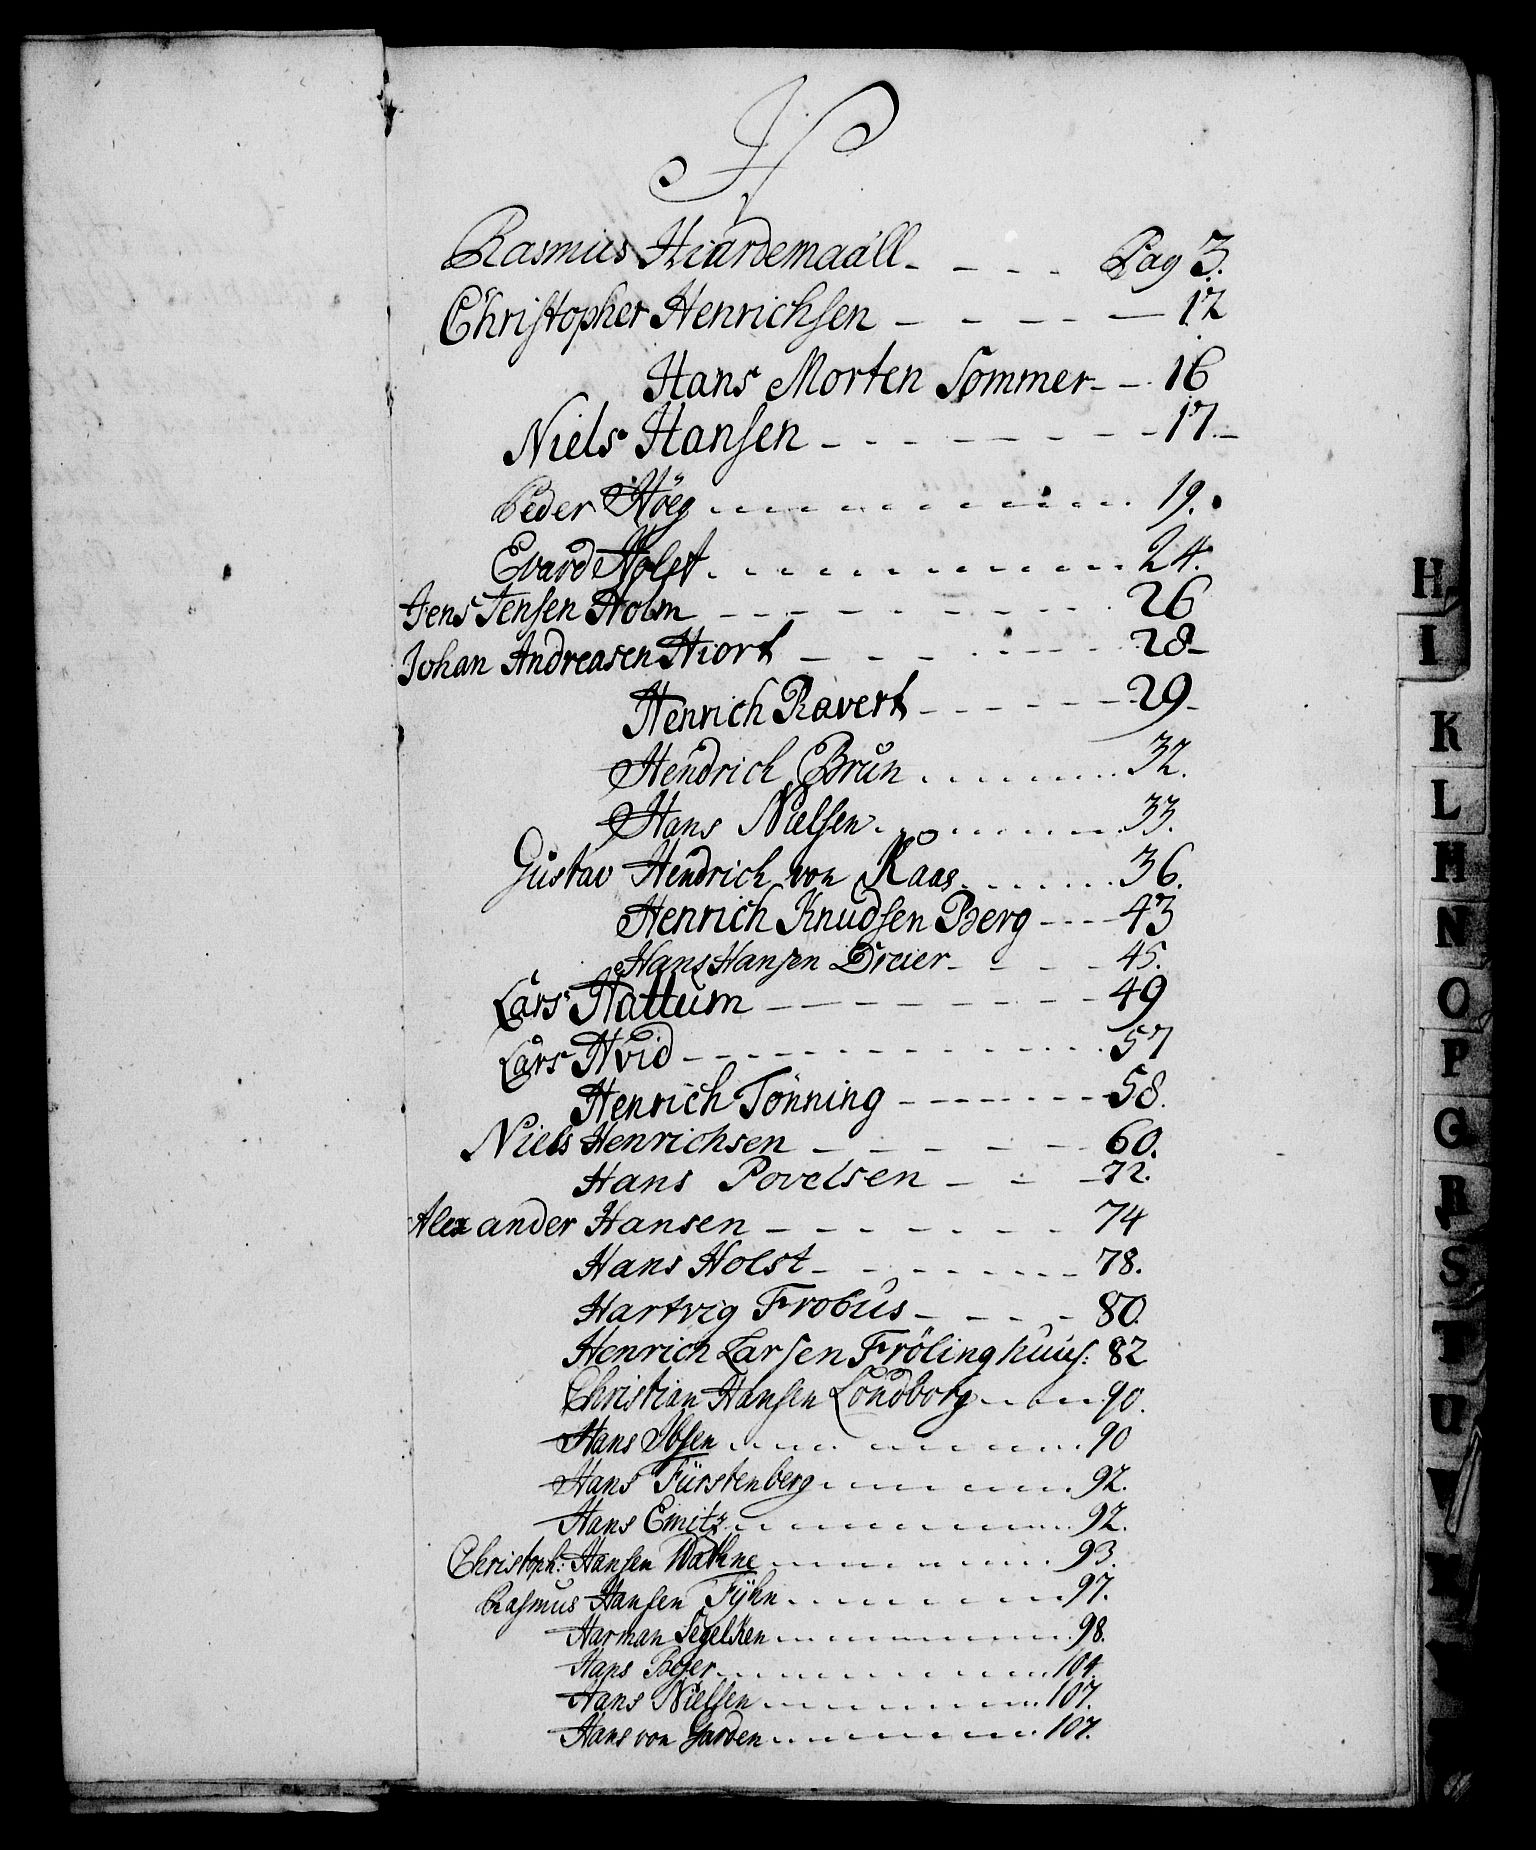 H
Rasmus Hiardemaall - - - - Pag 3.
Christopher Henrichsen - - - - - 12
Hans Morten Sommer - - 16
Niels Hansen - - - - - - - - 17 -
Peder Höeg - - - - - - - - 19.
Evard Holst - - - - - - - - 24.
Jens Jensen Holm - - - - - - - - 26
Johan Andreasen Hiort - - - - - - - 28 -
Henrich Ravert - - - - - - 29 -
Hendrich Brun - - - - - - 32.
Hans Nielsen - - - - - - 33.
Gustav Hendrich von Kaas - - - - - 36.
Henrich Knudsen Berg - - - - 43
Hans Hansen Dreier - - - - 45.
Lars Hattum - - - - - - - - 49
Lars Hvid - - - - - - - - 57
Henrich Tönning - - - - - - 58.
Niels Henrichsen - - - - - - 60.
Hans Povelsen - - - 72.
Alexander Hansen - - - - - - - 74
Hans Holst - - - - - - - 78.
Hartvig Frobus - - - - 80.
Henrich Larsen Frölinghuus: 82
Christian Hansen Londborg - - - - 90.
Hans Ibsen - - - - - - - 90
Hans Fürstenberg - - - - - - 92.
Hans Emitz - - - - - - - 92.
Christoph: Hansen Wathne - - - - - - 93.
Rasmus Hansen Fÿhn - - - - - - 97.
Harman Segelken - - - - - - 98.
Hans Beÿer - - - - - - - 104
Hans Nielsen - - - - - - - 107.
Hans von Garden - - - - - - - 107.
H
I
K
L
M
N
O
P
Q
R
S
T
U